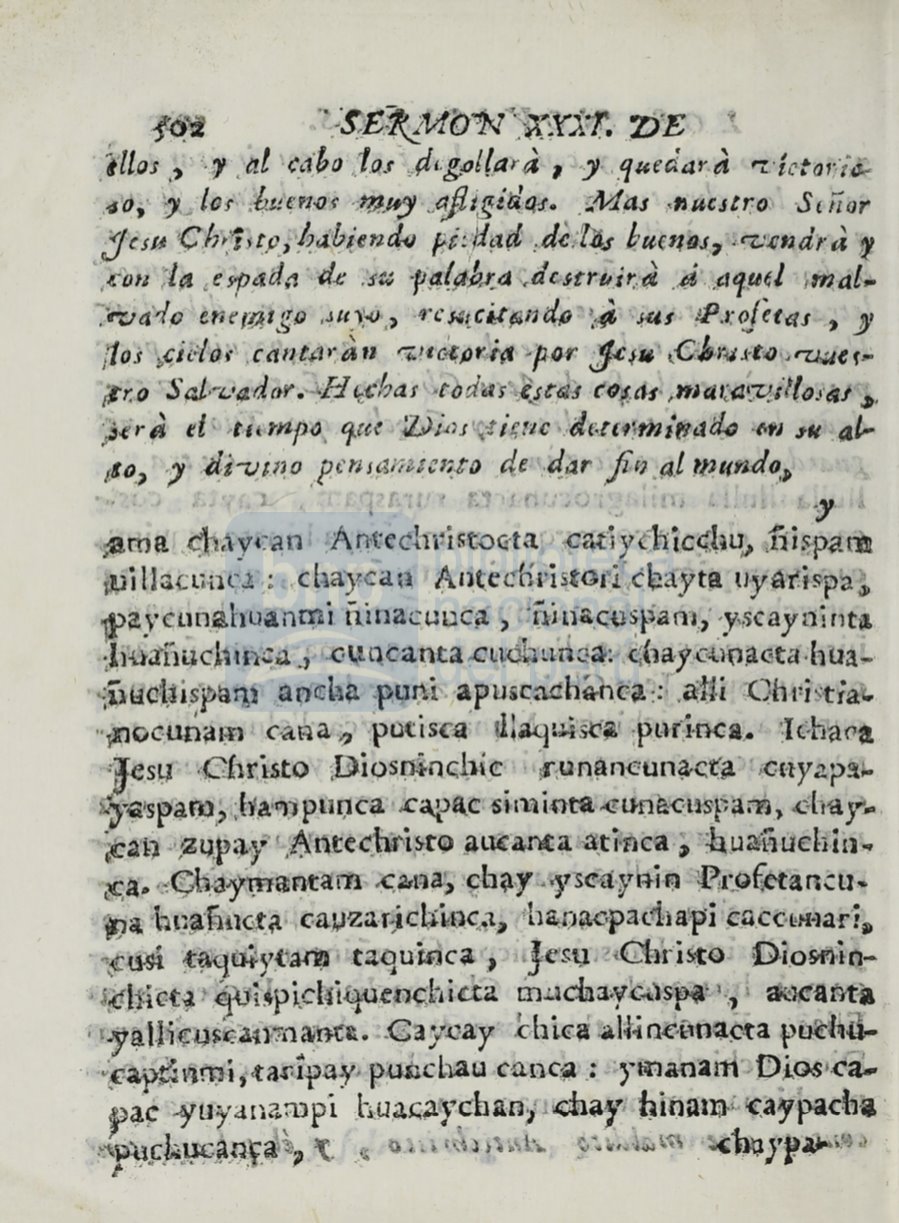 502 SERMON XXXI. DE
ellos, y al cabo los degollarà, y quedarà victorio-
so, y los buenos muy afligidos. Mas nuestro Señor
Jesu Christo, habiendo piedad de los buenos, vendrà y
con la espada de su palabra destruirà à aquel mal-
vado enemigo suyo, resucitando à sus Profetas, y
los cielos cantaràn victoria por Jesu Christo nues-
tro Salvador. Hechas todas estas cosas maravillosas,
serà el tiempo que Dios tiene determinado en su al-
to, y divino pensamiento de dar fin al mundo,
y
ama chaycan Antechristocta catiychicchu, ñispam
uillacunca: chaycan Antechristori chayta uyarispa,
paycunahuanmi ñinacunca, ñinacuspam, yscayninta
huañuchinca, cuncanta cuchunca: chaycunacta hua-
ñuchispam ancha puni apuscachanca: alli Christia-
nocunam cana, putisca llaquisca purinca. Ichaca
Jesu Christo Diosninchic runancunacta cuyapa-
yaspam, hampunca capac siminta cunacuspam, chay-
can zupay Antechristo aucanta atinca, huañuchin-
ca. Chaymantam cana, chay yscaynin Profetancu-
na huañucta cauzarichinca, hanacpachapi caccunari,
cusi taquiytam taquinca, Jesu Christo Diosnin-
chicta quispichiquenchicta muchaycuspa, aucanta
yallicuscanmanta. Caycay chica allincunacta puchu-
captinmi, taripay punchau canca: ymanam Dios ca-
pac yuyanampi huacaychan, chay hinam caypacha
puchucanca,
chaypa-